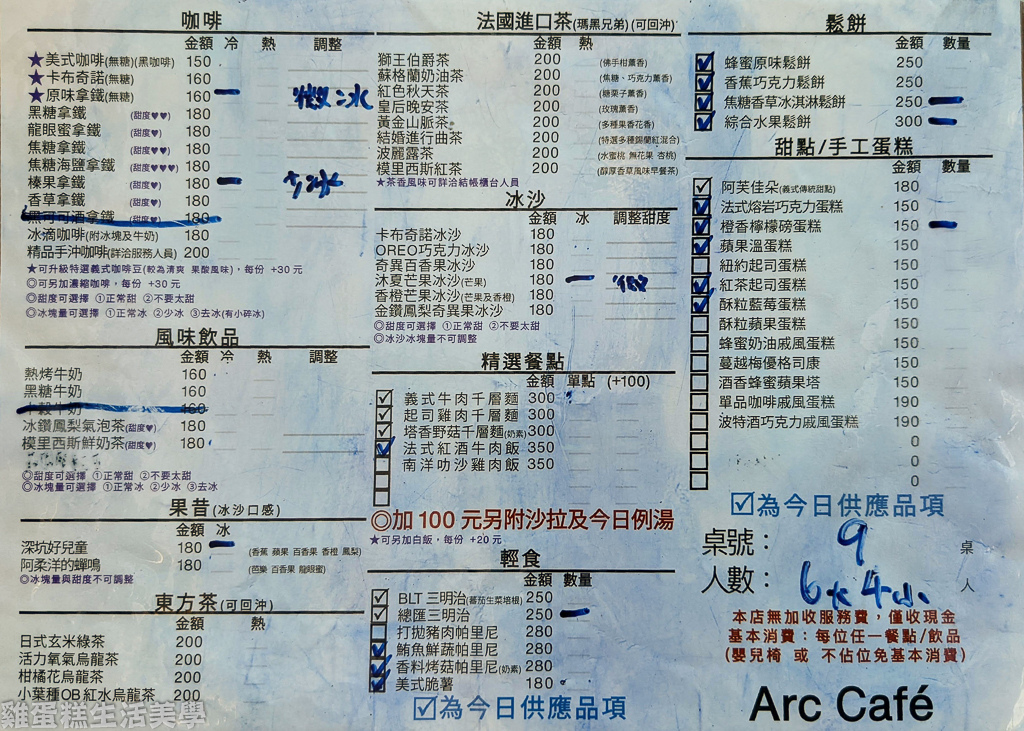 咖啡
金額 冷 熱 調整
★美式咖啡(無糖)(黑咖啡) 150
★卡布奇諾(無糖) 160
★原味拿鐵(無糖) 160 微冰
黑糖拿鐵 (甜度♥♥) 180
龍眼蜜拿鐵 (甜度♥) 180
焦糖拿鐵 (甜度♥♥) 180
焦糖海鹽拿鐵 (甜度♥♥♥) 180
榛果拿鐵 (甜度♥) 180 少冰
香草拿鐵 (甜度♥) 180
黑可可酒拿鐵 (甜度♥) 180
冰滴咖啡(附冰塊及牛奶) 180
精品手沖咖啡(詳洽服務人員) 200
★可升級特選義式咖啡豆(較為清爽 果酸風味),每份 +30 元
◎可另加濃縮咖啡,每份 +30元
◎甜度可選擇 ①正常甜 ②不要太甜
◎冰塊量可選擇 ①正常冰 ②少冰 ③去冰(有小碎冰)
風味飲品
金額 冷 熱 調整
熱烤牛奶 160
黑糖牛奶 160
牛奶 160
冰鑽鳳梨氣泡茶(甜度♥) 180
模里西斯鮮奶茶(甜度♥) 180
◎甜度可選擇 ①正常甜 ②不要太甜
◎冰塊量可選擇 ①正常冰 ②少冰 ③去冰
果昔(冰沙口感)
金額 冰
深坑好兒童 180 (香蕉 蘋果 百香果 香橙 鳳梨)
阿柔洋的蟬鳴 180 (芭樂 百香果 龍眼蜜)
◎冰塊量與甜度不可調整
東方茶(可回沖)
金額 熱
日式玄米綠茶 200
活力氧氣烏龍茶 200
柑橘花烏龍茶 200
小葉種OB紅水烏龍茶 200
法國進口茶(瑪黑兄弟)(可回沖)
金額 熱
獅王伯爵茶 200 (佛手柑薰香)
蘇格蘭奶油茶 200 (焦糖、巧克力薰香)
紅色秋天茶 200 (糖栗子薰香)
皇后晚安茶 200 (玫瑰薰香)
黃金山脈茶 200 (多種果香花香)
結婚進行曲茶 200 (特選多種錫蘭紅混合)
波麗露茶 200 (水蜜桃 無花果 杏桃)
模里西斯紅茶 200 (醇厚香草風味早餐茶)
★茶香風味可詳洽結帳櫃台人員
冰沙
金額 冰 調整甜度
卡布奇諾冰沙 180
OREO巧克力冰沙 180
奇異百香果冰沙 180
沐夏芒果冰沙(芒果) 180
香橙芒果冰沙(芒果及香橙) 180
金鑽鳳梨奇異果冰沙 180
◎甜度可選擇 ①正常甜 ②不要太甜
◎冰沙冰塊量不可調整
精選餐點
金額 單點 (+100)
義式牛肉千層麵 300
起司雞肉千層麵 300
塔香野菇千層麵(奶素) 300
法式紅酒牛肉飯 350
南洋叻沙雞肉飯 350
◎加 100 元另附沙拉及今日例湯
★可另加白飯,每份 +20 元
輕食
金額 數量
BLT 三明治(蕃茄生菜培根) 250
總匯三明治 250
打拋豬肉帕里尼 280
鮪魚鮮蔬帕里尼 280
香料烤菇帕里尼(奶素) 280
美式脆薯 180
☑為今日供應品項
鬆餅
金額 數量
蜂蜜原味鬆餅 250
香蕉巧克力鬆餅 250
焦糖香草冰淇淋鬆餅 250
綜合水果鬆餅 300
甜點/手工蛋糕
金額 數量
阿芙佳朵(義式傳統甜點) 180
法式熔岩巧克力蛋糕 150
橙香檸檬磅蛋糕 150
蘋果溫蛋糕 150
紐約起司蛋糕 150
紅茶起司蛋糕 150
酥粒藍莓蛋糕 150
酥粒蘋果蛋糕 150
蜂蜜奶油戚風蛋糕 150
蔓越梅優格司康 150
酒香蜂蜜蘋果塔 150
單品咖啡戚風蛋糕 190
波特酒巧克力戚風蛋糕 190
0
0
0
☑為今日供應品項
桌號: 9 桌
人數: 6大4小 人
本店無加收服務費,僅收現金
基本消費:每位任一餐點/飲品
(嬰兒椅 或 不佔位免基本消費)
Arc Café
雞蛋糕生活美學